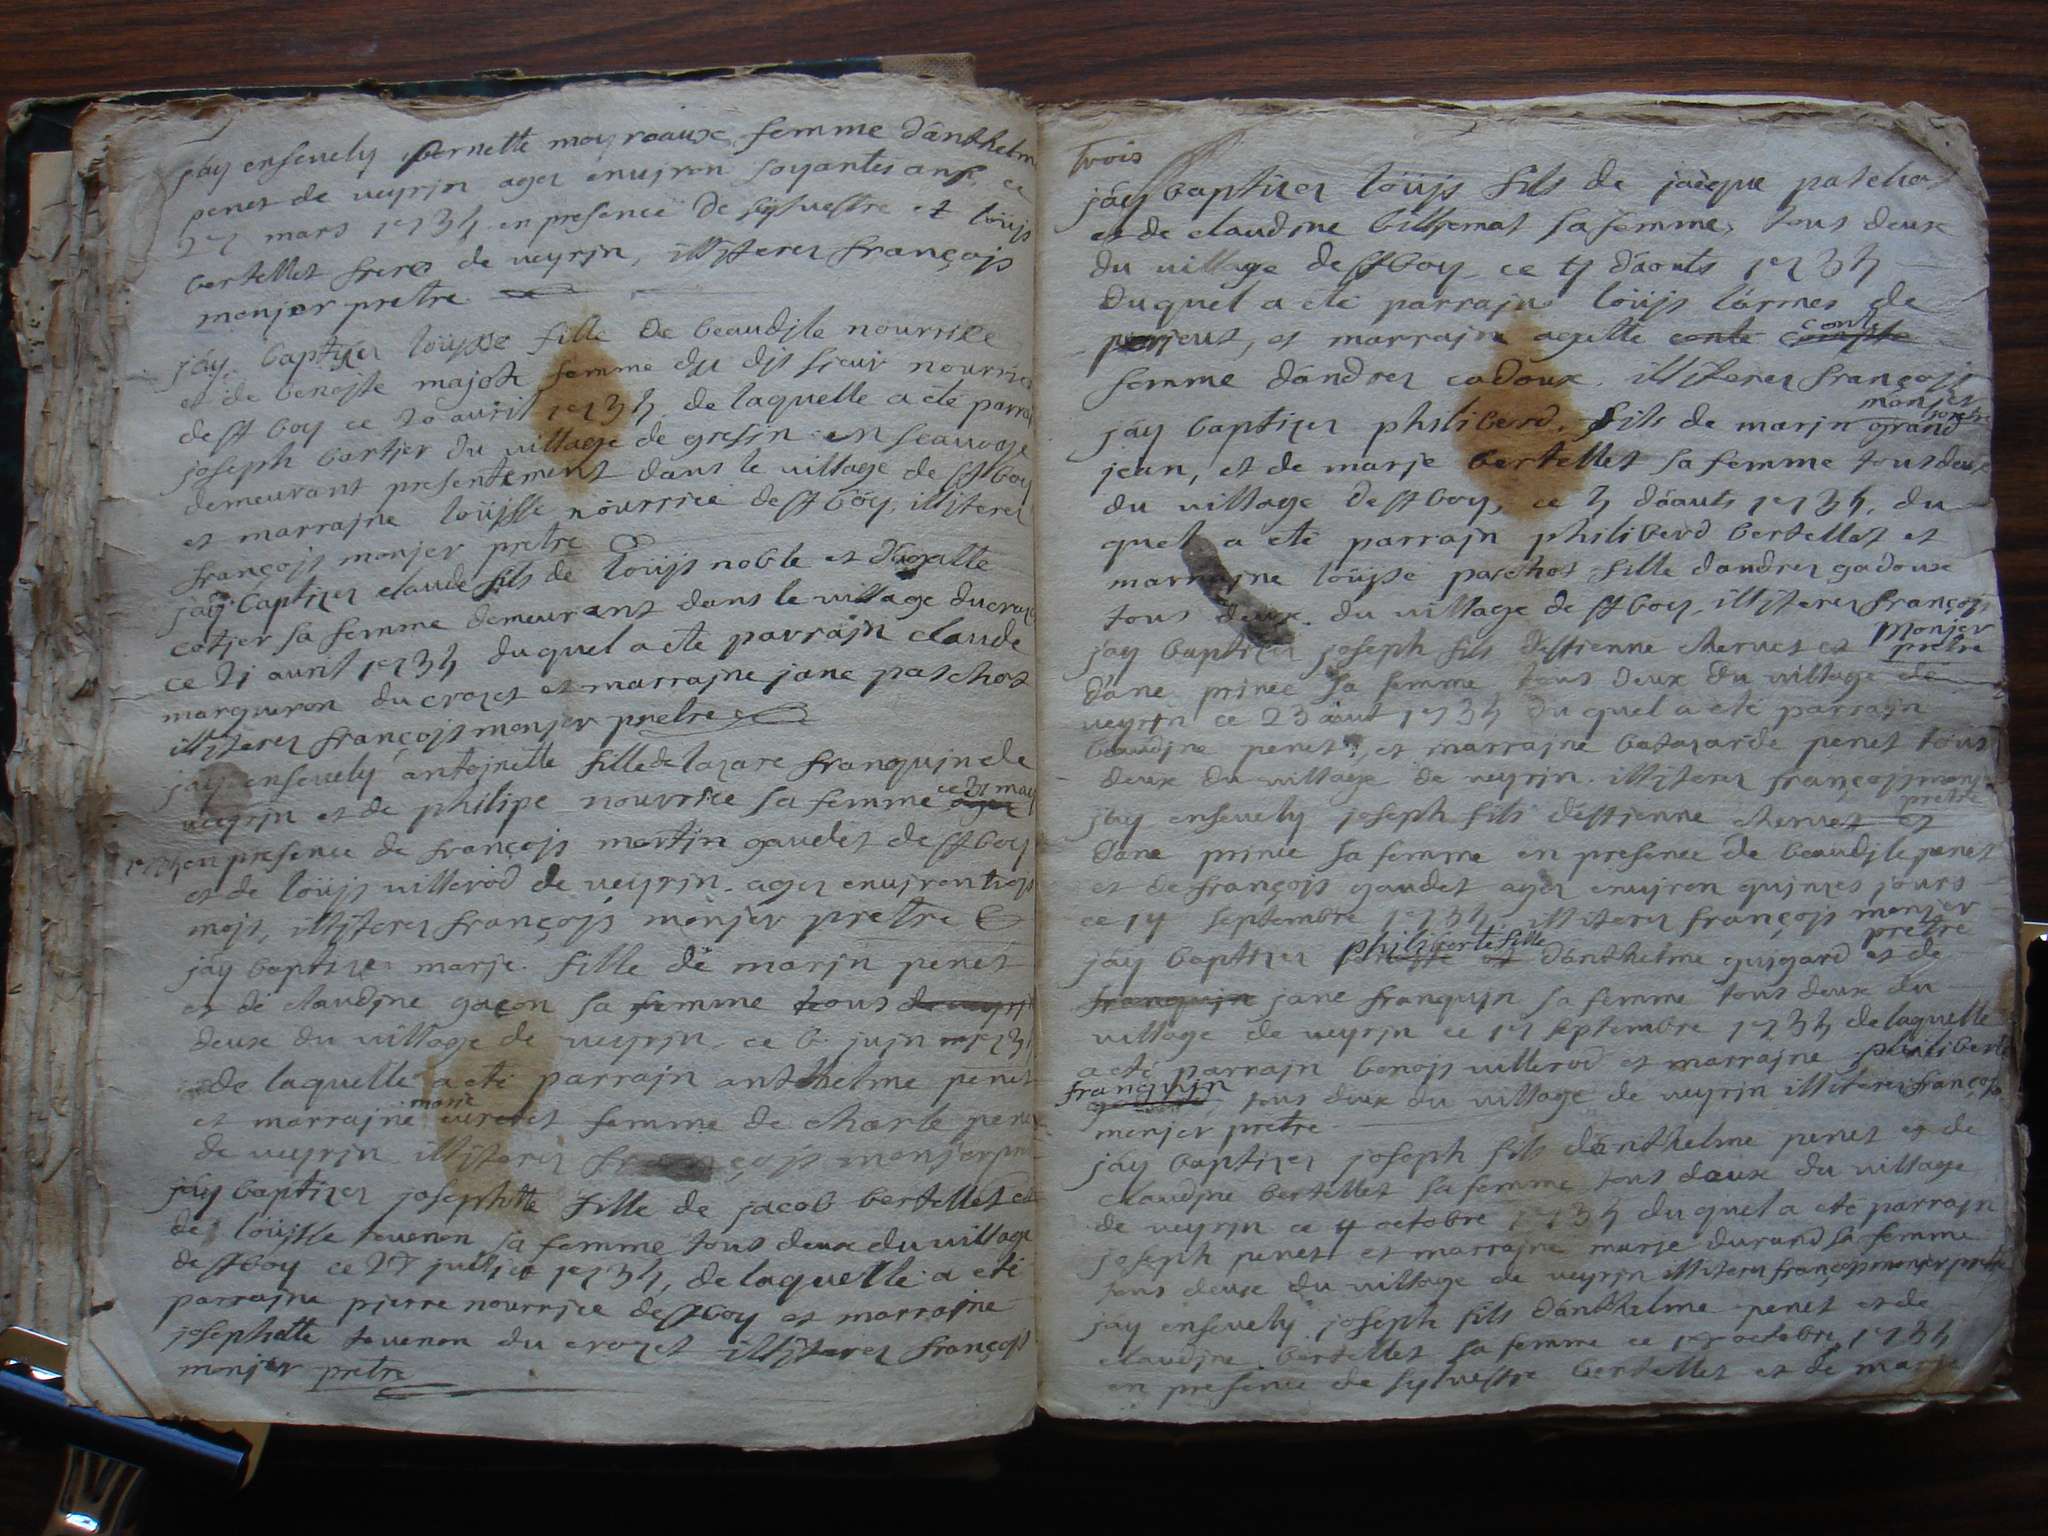 jay ensevely pernette moyroaux femme dânthelm
penet de veyrin agez environ soyantes ans, ce
27 mars 1734 en presence de sylvestre et loüjs
bertellet freres de veyrin, illiterez françojs
monjer pretre
jáy baptizez loüjse fille de beaudjle nourrice
et de benojte majote femme du dit sieur nourrice
de st boy ce 20 avril 1734 de laquelle a été parrai
joseph bartjer du village de gresin en seauvoge
demeurant presentement dans le village de st boy
et marrajne loüjsse nourrice de st boy, illiterez
françojs monjer pretre
jáy baptizez claude fils de loüjs noble et
cotjer sa femme demeurant dans le village du croze
ce 21 avril 1734 du quel a été parrajn claude
margueron du crozet et marrajne jane paschot
illiterez françojs monjer pretre
jay ensevely antojnette fille de lazare franquin de
veyrjn et de philipe nourrice sa femme ce 31 may
1734 en presence de françojs martin gaudet de st boy
et de loüjs villerod de veyrjn. agez environ trojs
mojs, illiterez françojs monjer pretre
jáy baptizez marje fille de marjn penet
et de claudjne gaçon sa femme tous de veyrjn
deux du village de veyrjn ce 6 jujn 1734
de laquelle a été parrajn anthelme penet
et marrajne marie curtet femme de charle penet
de veyrjn illiterez françojs monjer pre
jáy baptizez josephtte fille de jacob bertellet et
de loüjse tevenon sa femme tous deux du village
de st boy ce 28 julliet 1734, de laquelle a été
parrajne pjerre nourrjce de st boy et marrajne
josephtte tevenon du crozet illiterez françojs
monjer pretre
trois
jáy baptizez loüjs fils de jacque paschot
et de claudjne billiemat sa femme, tous deux
du village de st boy ce 4 d'áouts 1734
du quel a été parrajn loüjs lármes de
perjeux, et marrajne agatte conte comte conte
femme dándrez cadoux. illiterez françojs
monjer pretre
jáy baptizez philiberd. fils de marjn grand
jean, et de marje bertellet sa femme tous deux
du village de st boy, ce 4 dáauts 1734, du
quel a été parrajn philiberd bertellet et
marrajne loüjse paschot fille dandrez gadoux
tous deux. du village de st boy. illiterez françojs
monjer pretre
jay baptizez joseph fils destienne chervet et
dáne prince sa femme tous deux du village de
veyrjn ce 23 áut 1734 du quel a été parrajn
beaudjne penet, et marrajne batazarde penet tous
deux du village de veyrjn. illiterez françojs monjer
pretre
jáy ensevely joseph fils destjenne chervet et
dáne prince sa femme en presence de beaudjle penet
et de françojs gaudet agez environ qujnzes jours
ce 14 septembre 1734 illiterez françojs monjer
pretre
jáy baptizez philiberte fille dánthelme gujgard et de
franqujn jane franqujn sa femme tous deux du
village de veyrjn ce 17 septembre 1734 de laquelle
a été parrajn benojs villerod et marrajne philiberte
franqujn tous deux du village de veyrjn illiterez françojs
monjer pretre
jáy baptizez joseph fils dánthelme penet et de
claudjne bertellet sa femme tous deux du village
de veyrjn ce 4 octobre 1734 du quel a été parrajn
joseph penet et marrajne marje durand sa femme
tous deux du village de veyrjn illiterez françojs monjer pretre
jáy ensevely joseph fils dánthelme penet et de
claudjne bertellet sa femme ce 17 octobre 1734
en presence de sylvestre bertellet et de marje